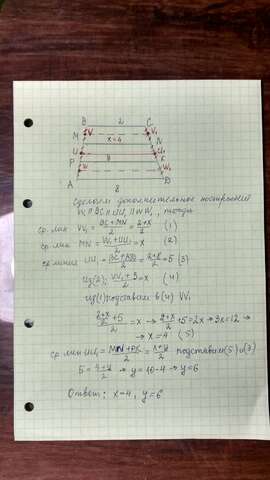 B 2 C
V V₁
M x=4 N
U U₁
P y K
W W₁
A 8 D
Сделаем дополнительное построение
VV₁ || BC || UU₁ || WW₁, тогда
ср. лин VV₁ = (BC+MN)/2 = (2+x)/2 (1)
ср. лин MN = (VV₁+UU₁)/2 = x (2)
ср линия UU₁ = (BC+AD)/2 = (2+8)/2 = 5 (3)
Из (2): (VV₁+5)/2 = x (4)
из (1) подставим в (4) VV₁
((2+x)/2 + 5)/2 = x → (2+x)/2 + 5 = 2x → 3x = 12 →
→ x = 4 (5)
ср лин UU₁ = (MN+PK)/2 = (x+y)/2 подставим (5) и (3)
5 = (4+y)/2 → y = 10-4 → y = 6
Ответ: x=4, y=6